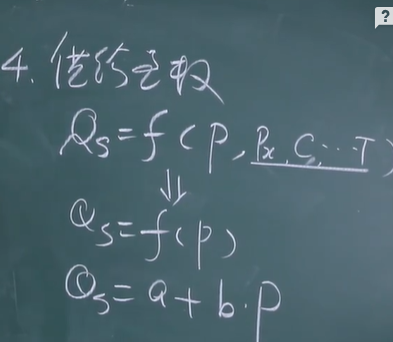 4. 供给函数
Qs=f(P, Px, C, ... T)
⇓
Qs=f(P)
Qs=a+b·P
?